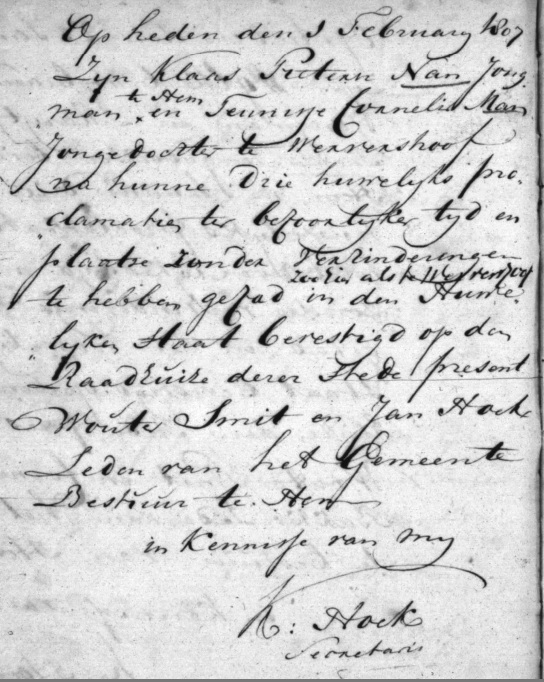 Op heden den 1 February 1807
Zyn Klaas Pieterse Nan Jong
man te Hem en Teunisje Cornelis Man
Jongedochter te Wervershoof
na hunne Drie huwelyks pro„
clamatien ter behoorlyker tyd en
plaatse zonder Verhinderingen
zoo hier als te Wervershoof
te hebben gehad in den Huwe
„lyken Staat bevestigd op den
Raadhuize dezer Stede present
Wouter Smit en Jan Hoek
Leden van het Gemeente
Bestuur te Hem
in Kennisse van my
K: Hoek
Secretaris